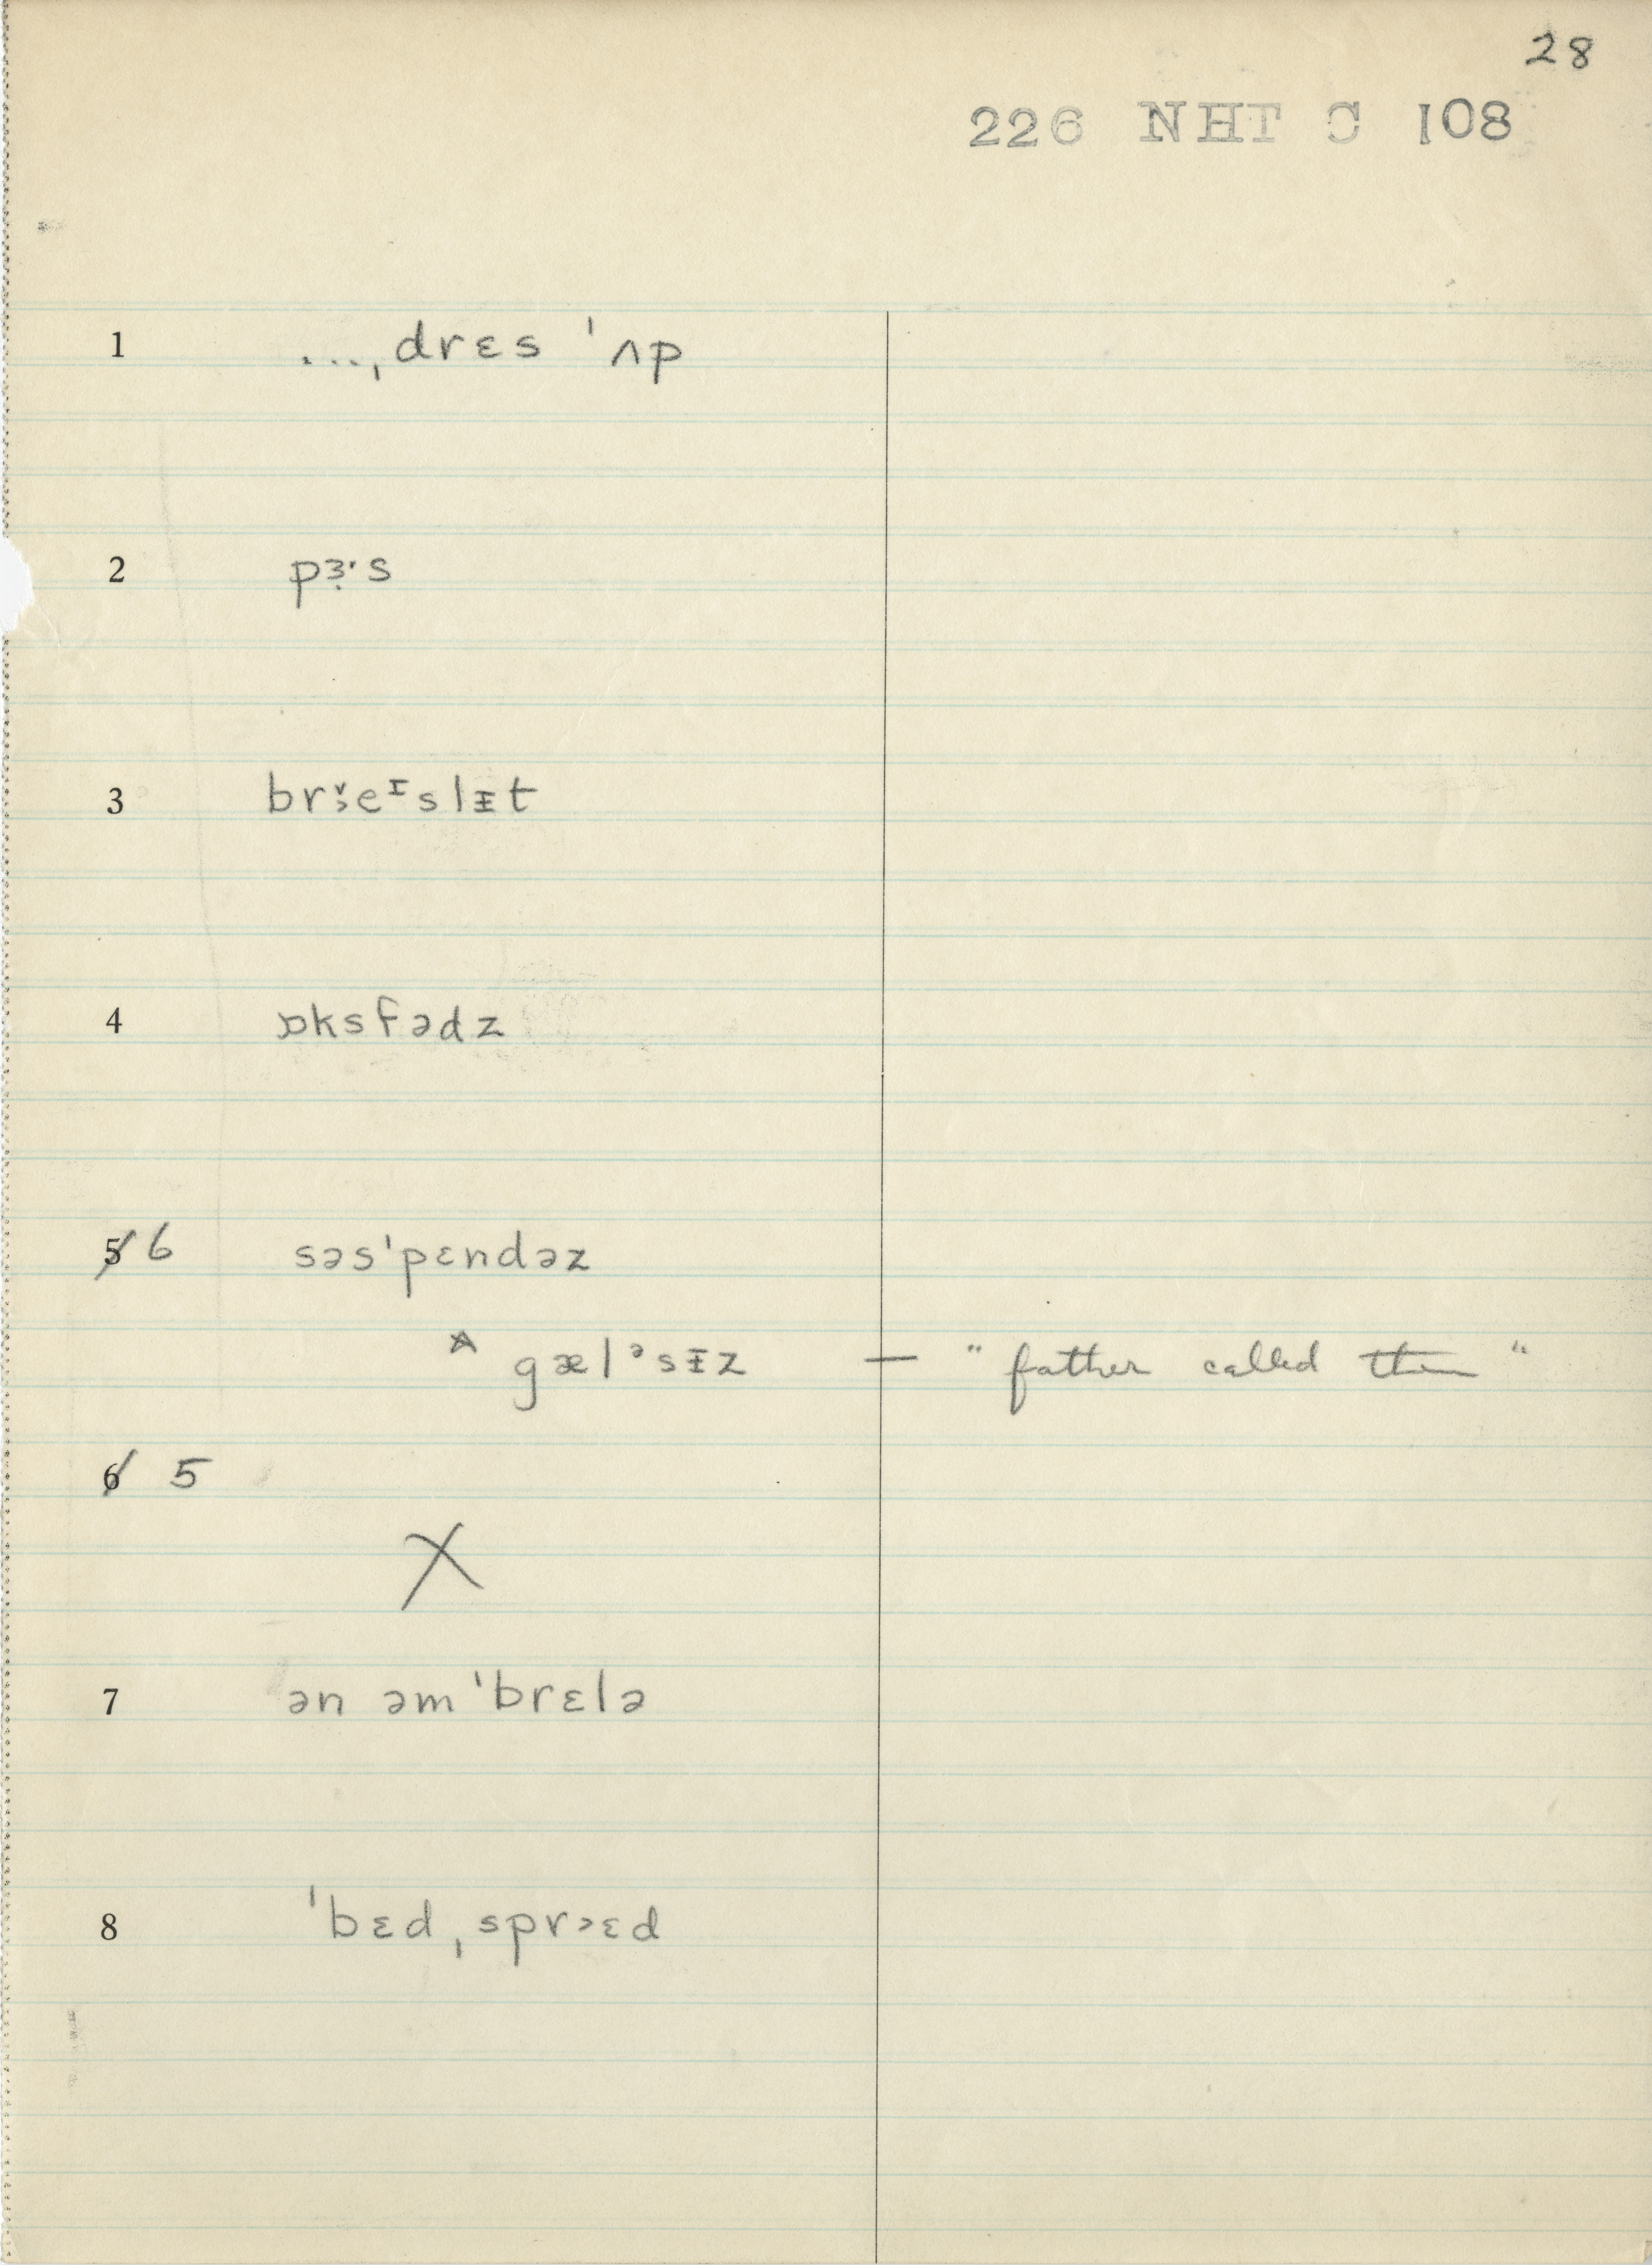 28
226 NHT C 108
1 ...ˌdrɛs ˈʌp
2 pɜ˞·s
3 breᶦslɪ̵t
4 ɒksfədz
5 6 səsˈpɛndəz
gælᵊsɪ̵z — "father called them"
6 5
X
7 ən əmˈbrɛlə
8 ˈbɛdˌspr˃ɛd